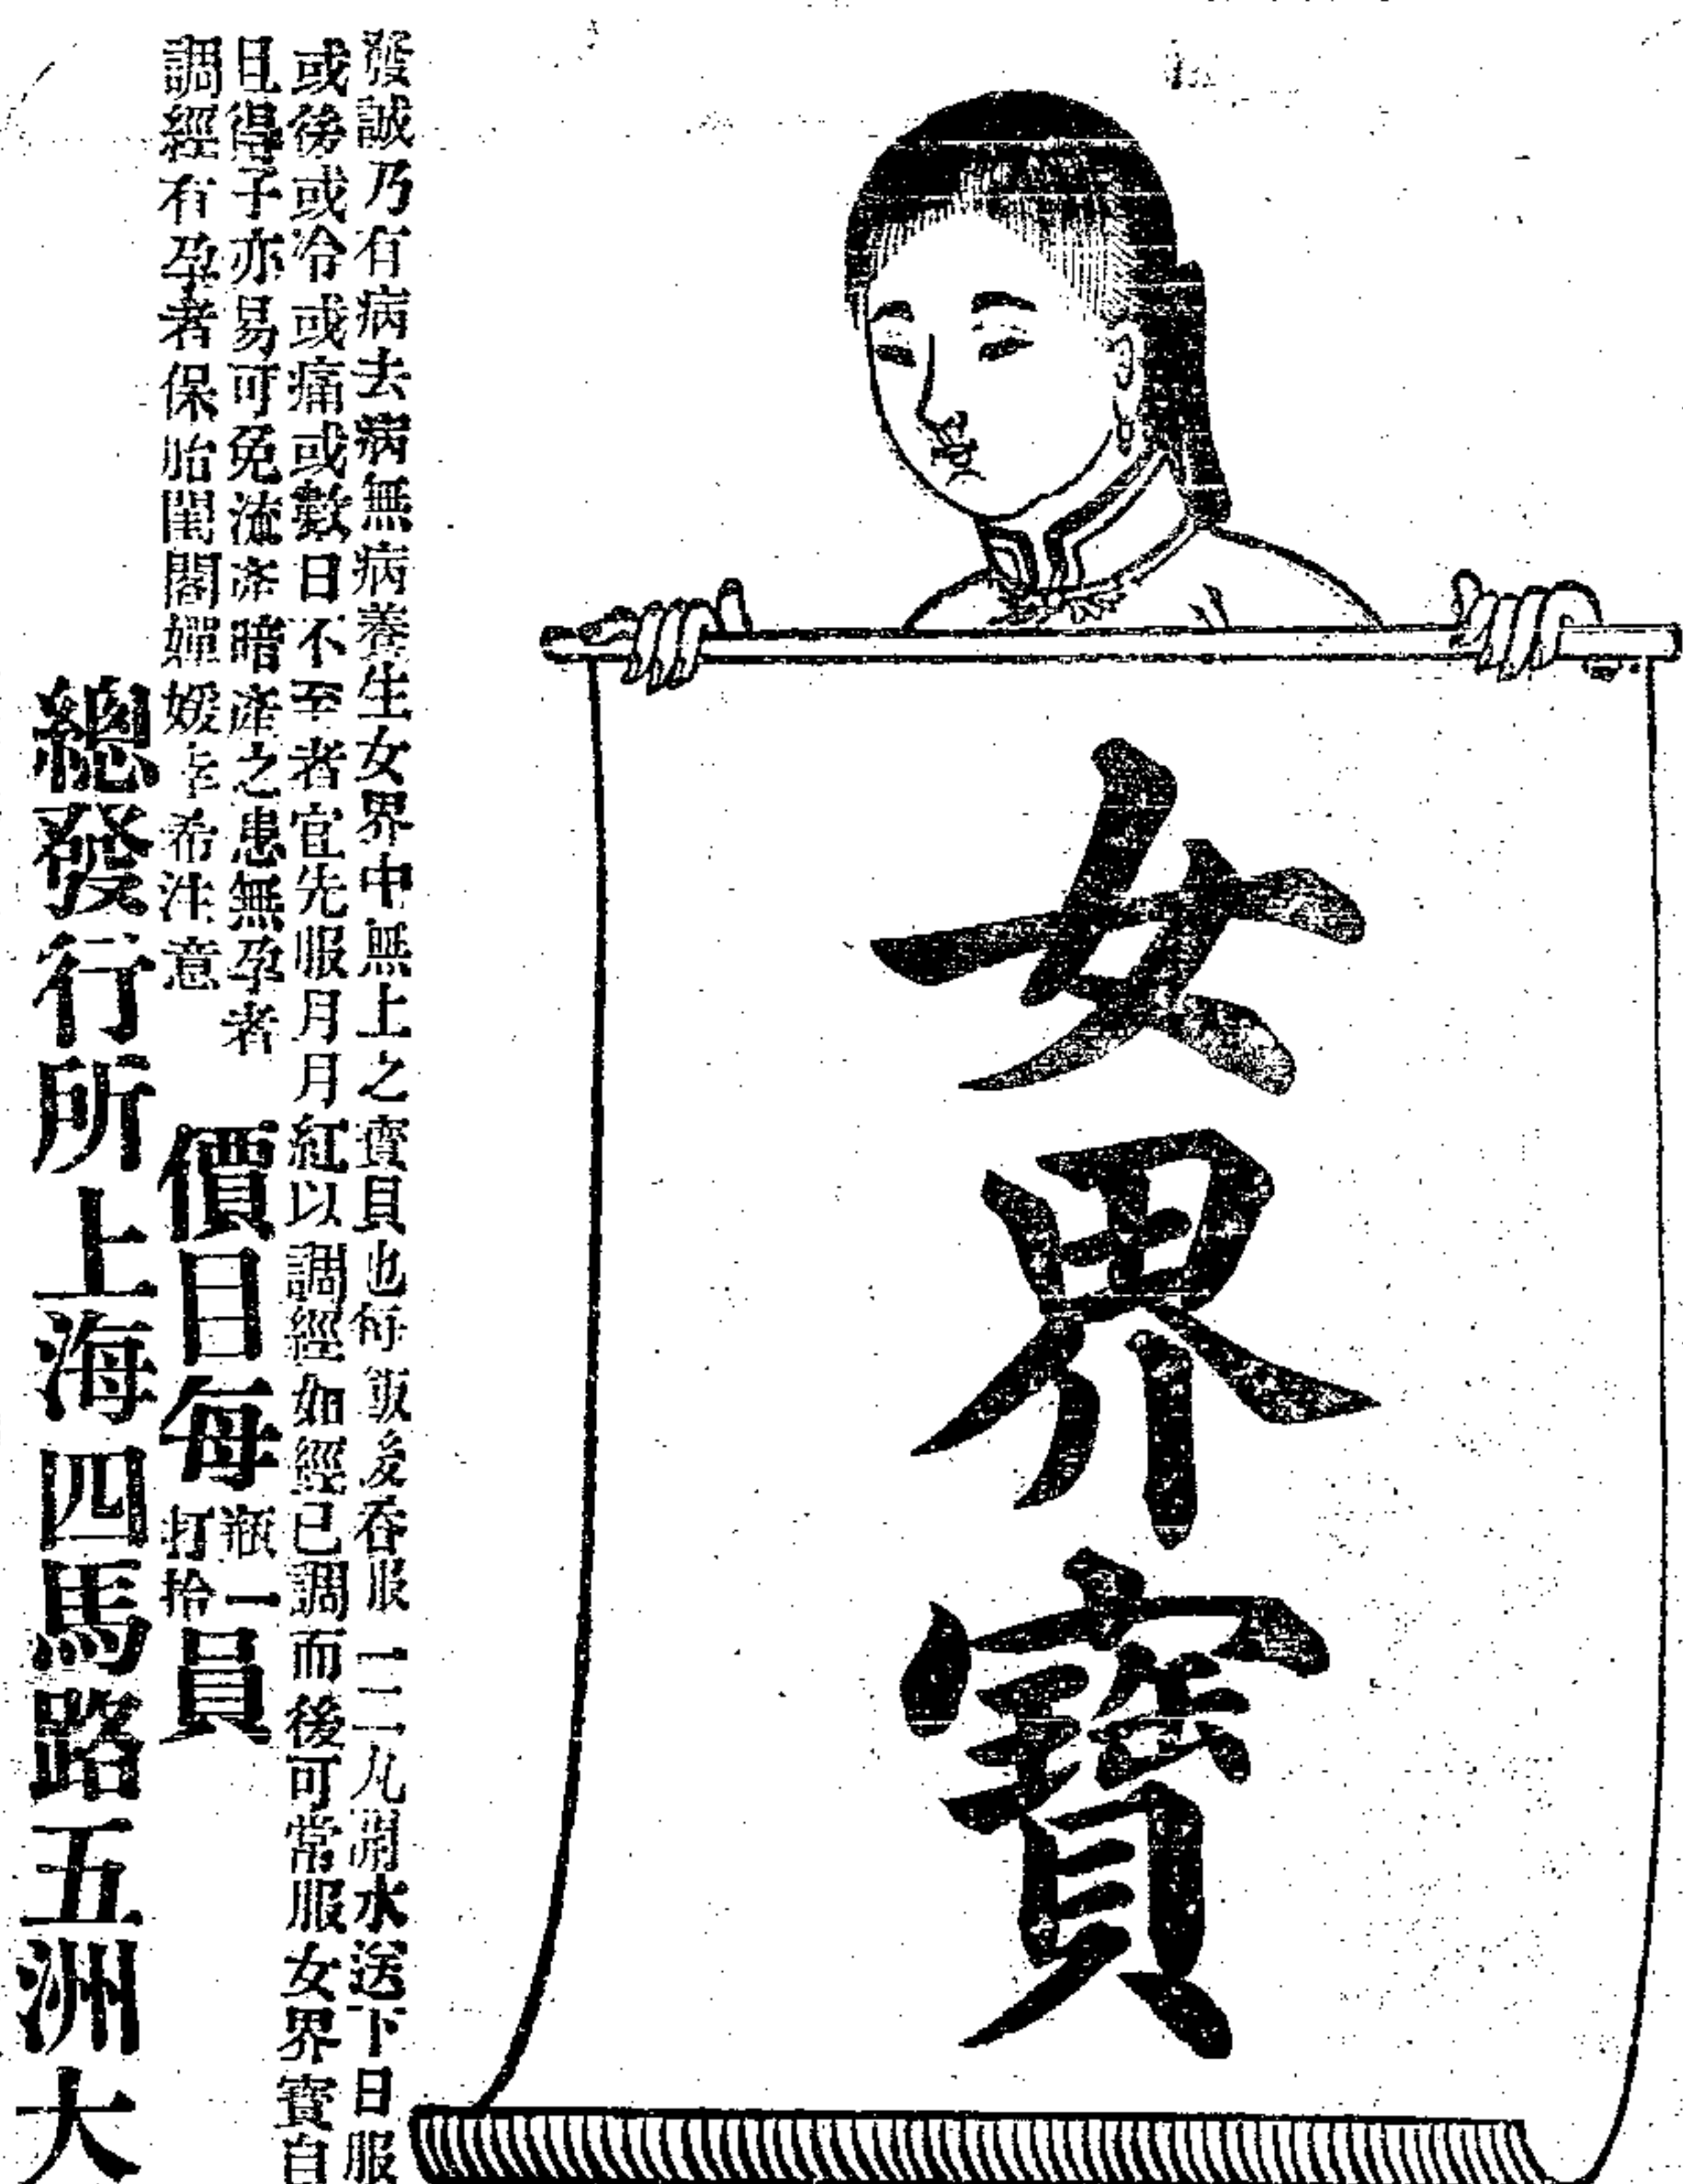 女界寶
發誠乃有病去病無病養生女界中無上之寶貝也每飯後吞服一二丸開水送下日服
或後或冷或痛或數日不至者宜先服月月紅以調經如經已調而後可常服女界寶自
且得子亦易可免流產暗產之患無孕者
調經有孕者保胎閨閣嬋媛幸希注意
價目每瓶一打拾員
總發行所上海四馬路五洲大